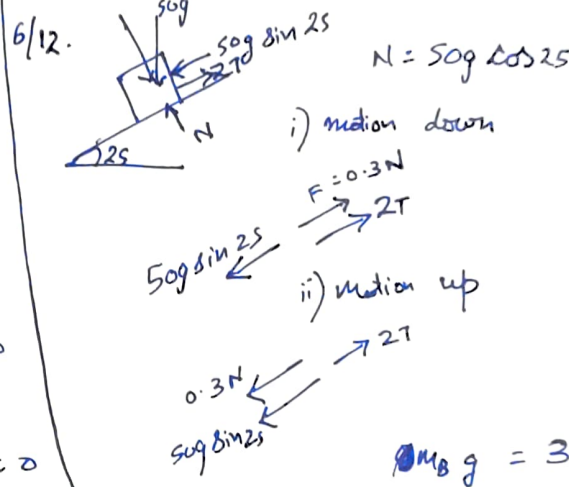 6/12.
50g
50g sin 25
2T
N
25
N = 50g cos 25
i) motion down
F = 0.3N
2T
50g sin 25
ii) motion up
2T
0.3N
50g sin 25
= 0
m_B g = 3